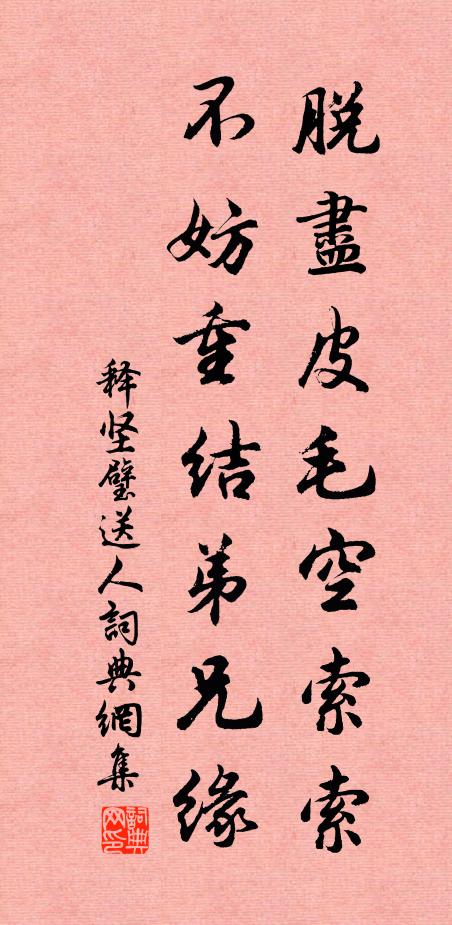 脫盡皮毛空索索
不妨重结弟兄緣
释坚璧送人詞典網集
詞典网印